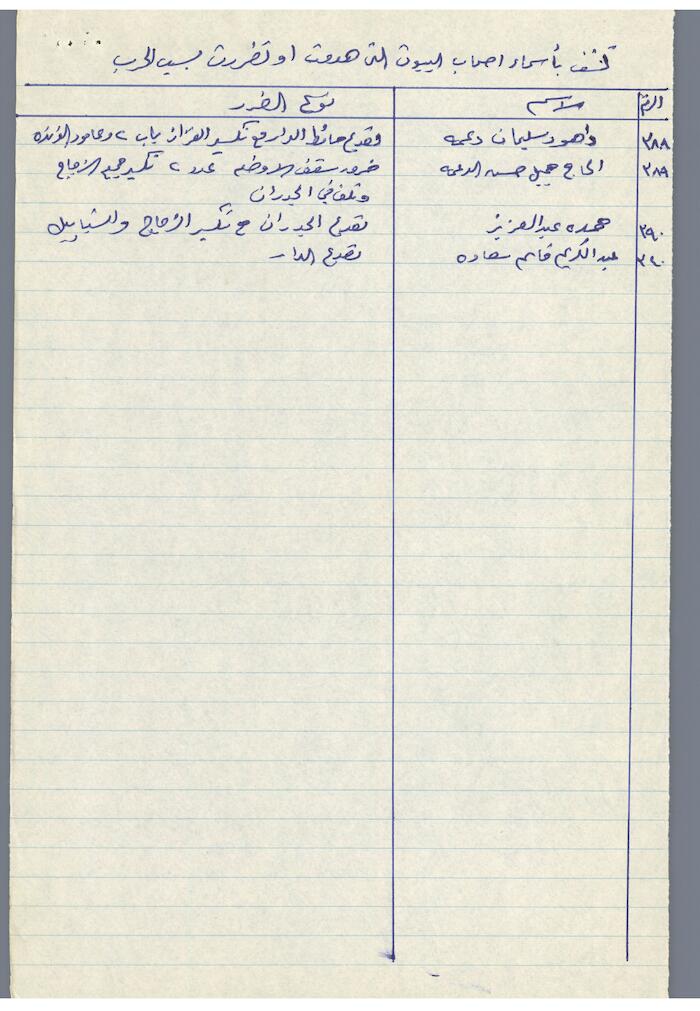 كشف بأسماء اصحاب البيوت التي هدمت او تضررت بسبب الحرب
الرقم الاسم نوع الضرر
٣٨٨ داهود سليمان دعمه وتصدع حائط الدار مع تكسير القزاز باب ٢ وعامود
٣٨٩ الحاج جميل حسن الدعمه ضرر سقف الاوضه عدد ٢ تكسير جميع الزجاج
وتلف في الجدران
٣٩٠ حمده عبد العزيز تصدع الجدران مع تكسير الزجاج والشبابيك
٣٤٠ عبد الكريم قاسم سعاده تصدع الدار